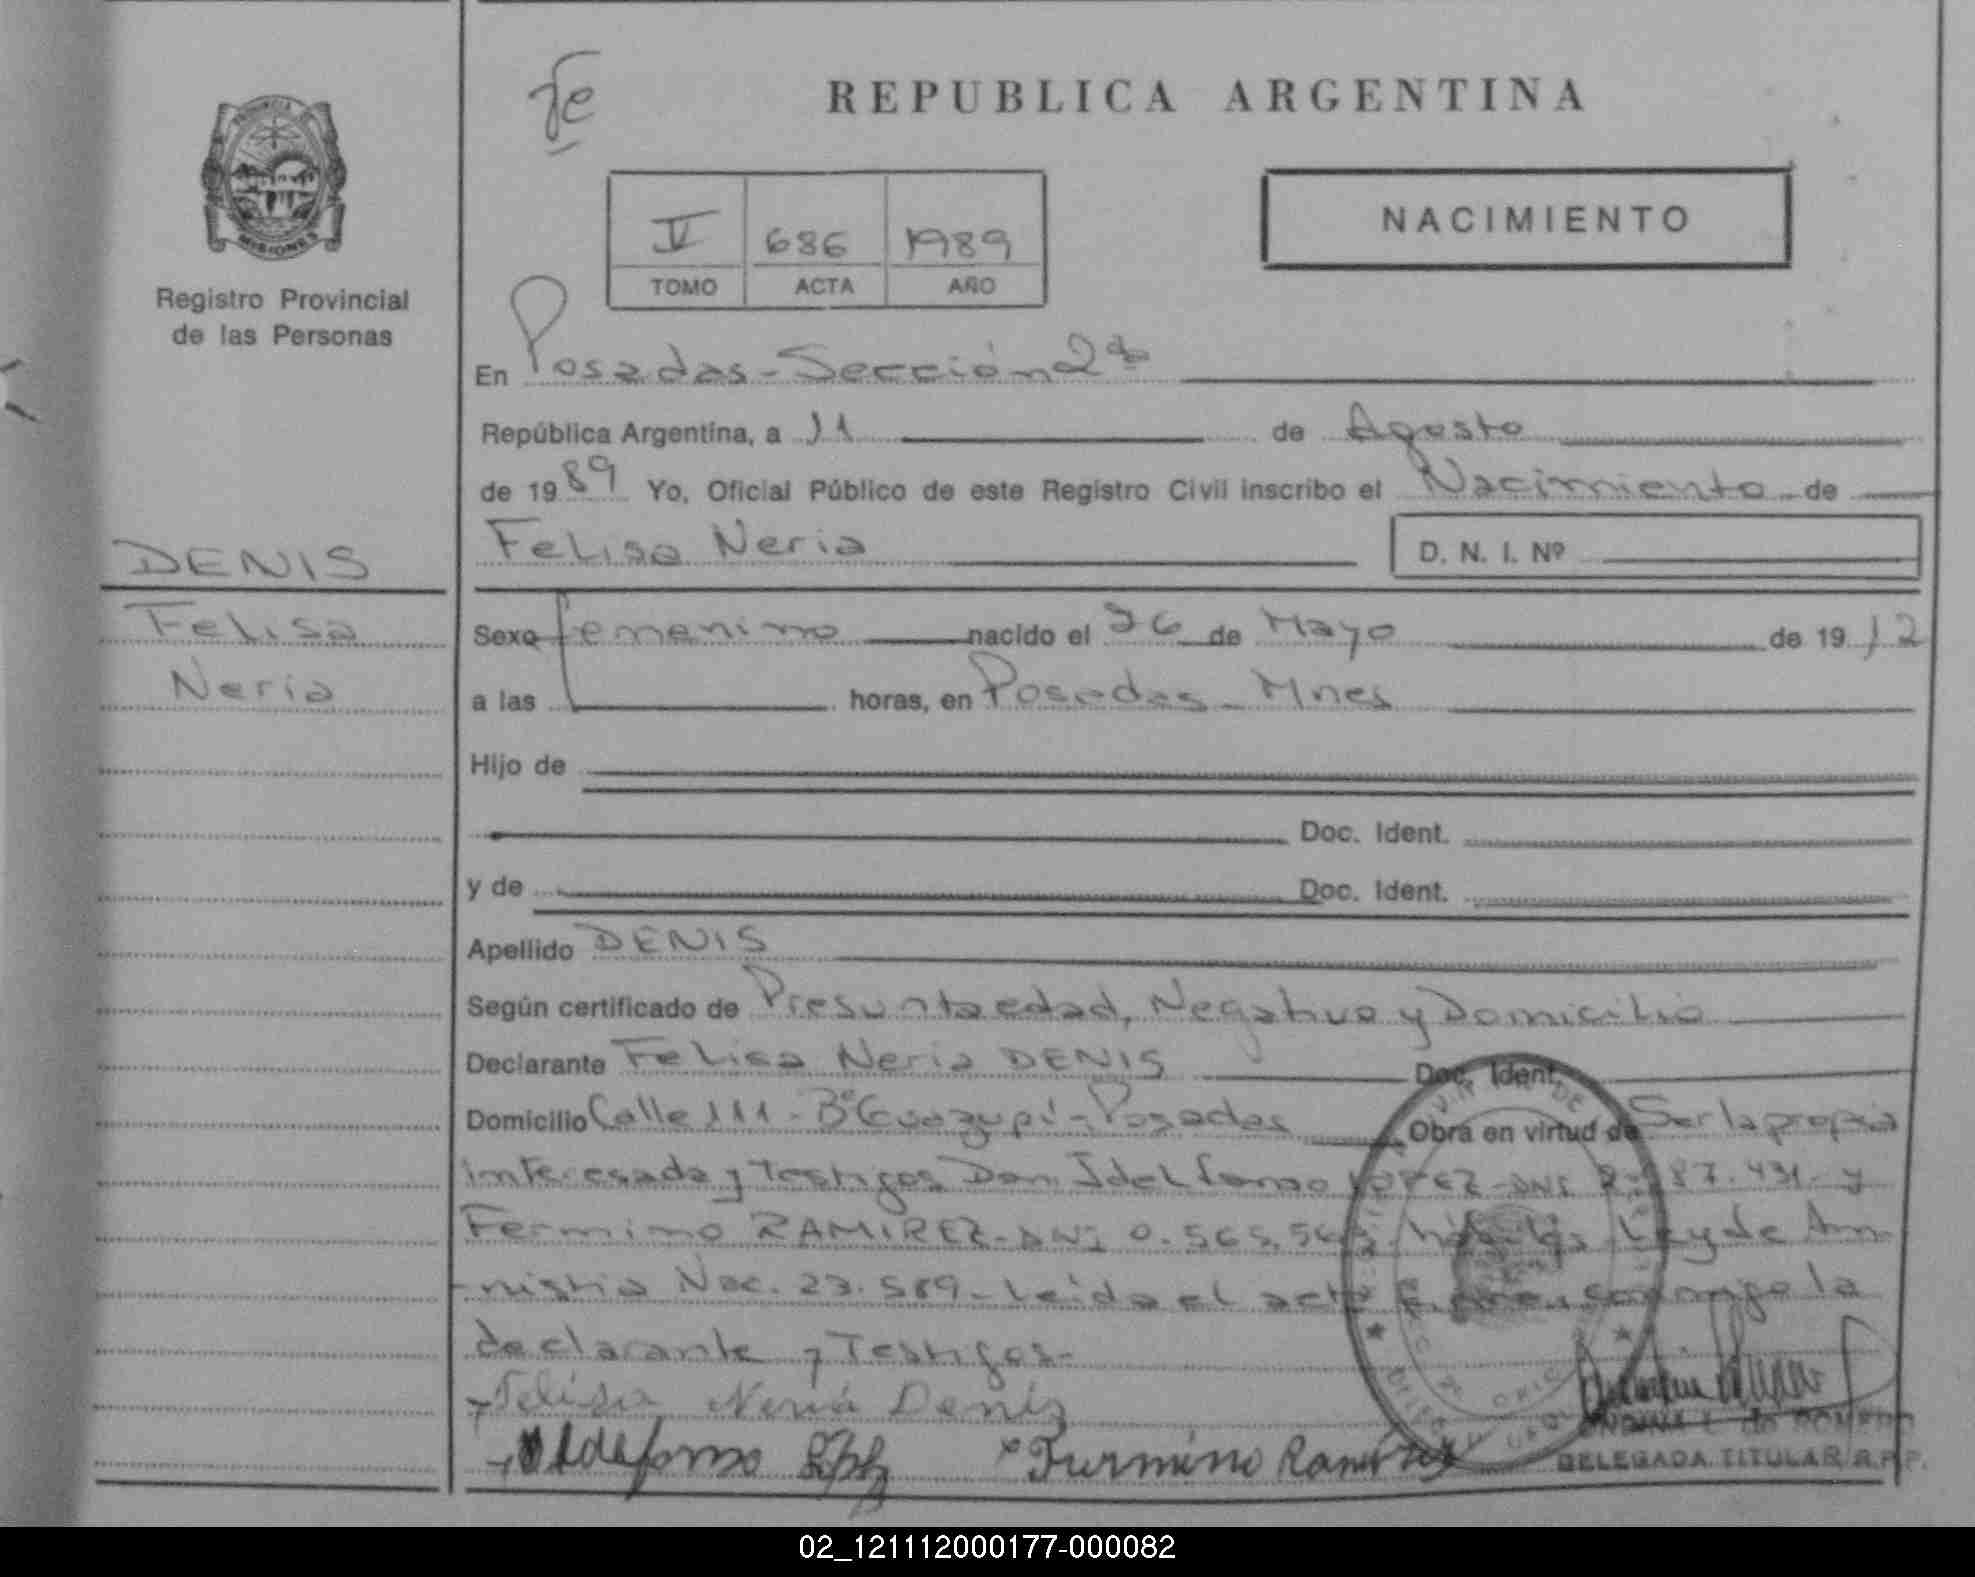 Fe
REPUBLICA ARGENTINA
PROVINCIA
MISIONES
V 686 1989
TOMO ACTA AÑO
NACIMIENTO
Registro Provincial
de las Personas
En Posadas - Sección 2da
República Argentina, a 11 de Agosto
de 1989 Yo, Oficial Público de este Registro Civil inscribo el Nacimiento de
Felisa Neria D. N. I. Nº
DENIS
Felisa
Neria
Sexo femenino nacido el 26 de Mayo de 1912
a las horas, en Posadas - Mnes
Hijo de
Doc. Ident.
y de Doc. Ident.
Apellido DENIS
Según certificado de Presunta edad, Negativo y Domicilio
Declarante Felisa Neria DENIS Doc. Ident.
Domicilio Calle 111 - Bº Guazupí - Posadas Obra en virtud de Ser la propia
interesada y Testigos Don Idelfonso LOPEZ - DNI 87.431 - y
Fermino RAMIREZ - DNI 0.565.56 hábiles - Ley de Am-
-nistia Nac. 23.589 - Leida el acta firman conmigo la
declarante y Testigos -
Felisa Neria Deniz
Ildefonso Lopez Furmino Ramirez
DELEGADA TITULAR R.P.P.
02_121112000177-000082